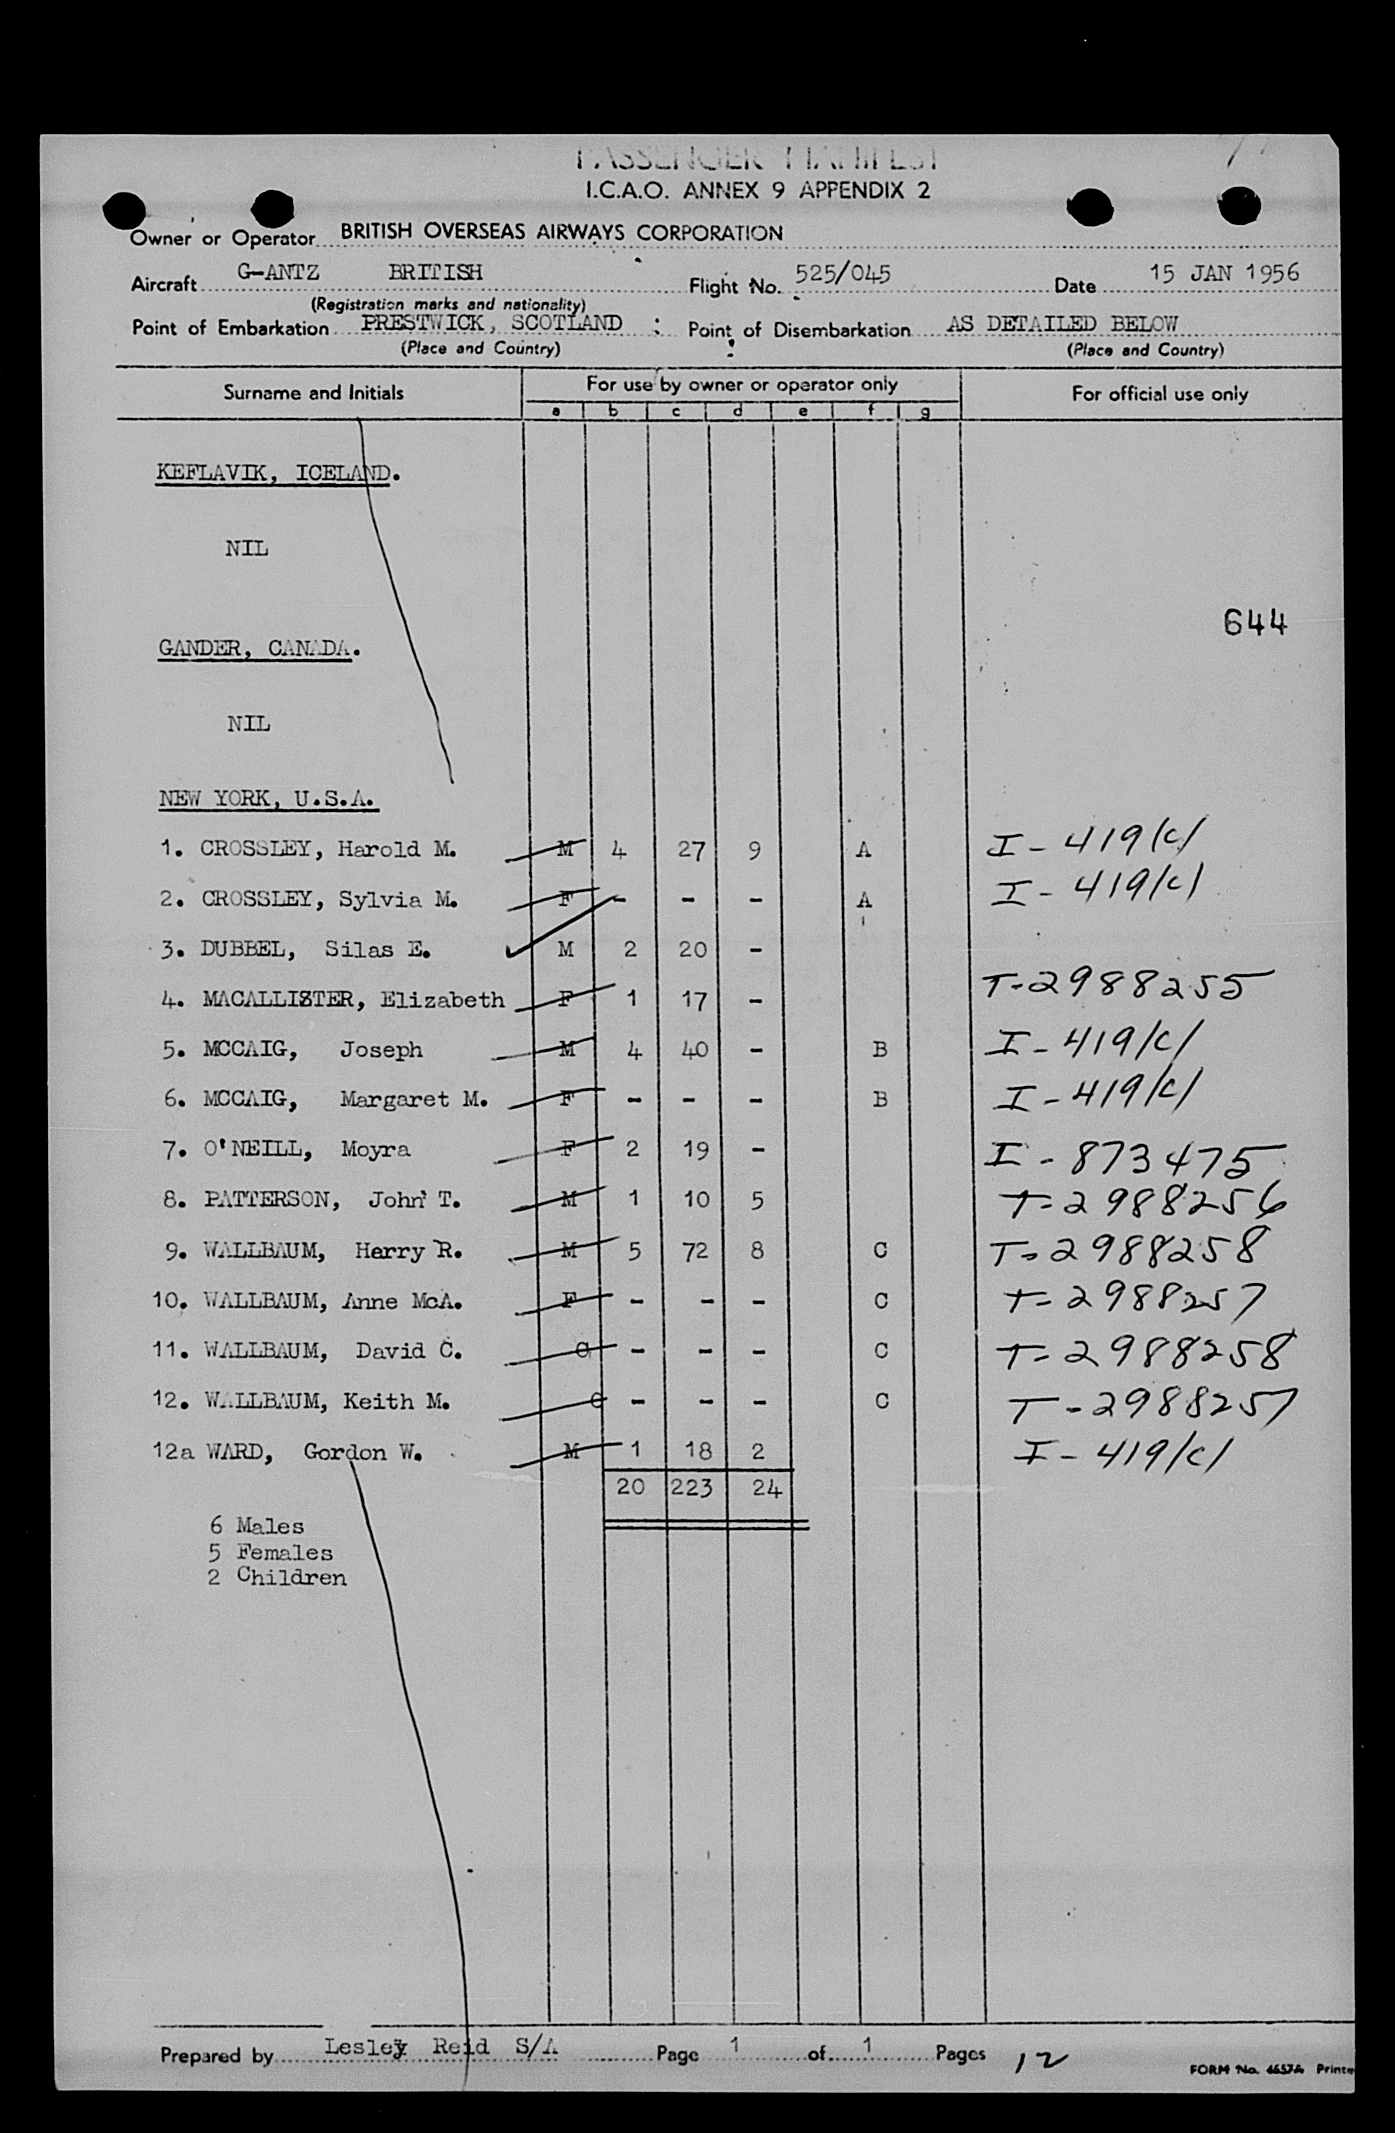 PASSENGER MANIFEST
I.C.A.O. ANNEX 9 APPENDIX 2
Owner or Operator BRITISH OVERSEAS AIRWAYS CORPORATION
Aircraft G-ANTZ BRITISH Flight No. 525/045 Date 15 JAN 1956
(Registration marks and nationality)
Point of Embarkation PRESTWICK, SCOTLAND : Point of Disembarkation AS DETAILED BELOW
(Place and Country) (Place and Country)
Surname and Initials For use by owner or operator only For official use only
a b c d e f g
KEFLAVIK, ICELAND.
NIL
644
GANDER, CANADA.
NIL
NEW YORK, U.S.A.
1. CROSSLEY, Harold M. M 4 27 9 A I - 419/c/
2. CROSSLEY, Sylvia M. F - - - A I - 419/c/
3. DUBBEL, Silas E. M 2 20 -
4. MACALLISTER, Elizabeth F 1 17 - T-2988255
5. MCCAIG, Joseph M 4 40 - B I - 419/c/
6. MCCAIG, Margaret M. F - - - B I - 419/c/
7. O'NEILL, Moyra F 2 19 - I - 873475
8. PATTERSON, John T. M 1 10 5 T-2988256
9. WALLBAUM, Harry R. M 5 72 8 C T-2988258
10. WALLBAUM, Anne McA. F - - - C T-2988257
11. WALLBAUM, David C. C - - - C T-2988258
12. WALLBAUM, Keith M. C - - - C T-2988257
12a WARD, Gordon W. M 1 18 2 I - 419/c/
20 223 24
6 Males
5 Females
2 Children
Prepared by Lesley Reid S/A Page 1 of 1 Pages 12
FORM No. 4657A Printe